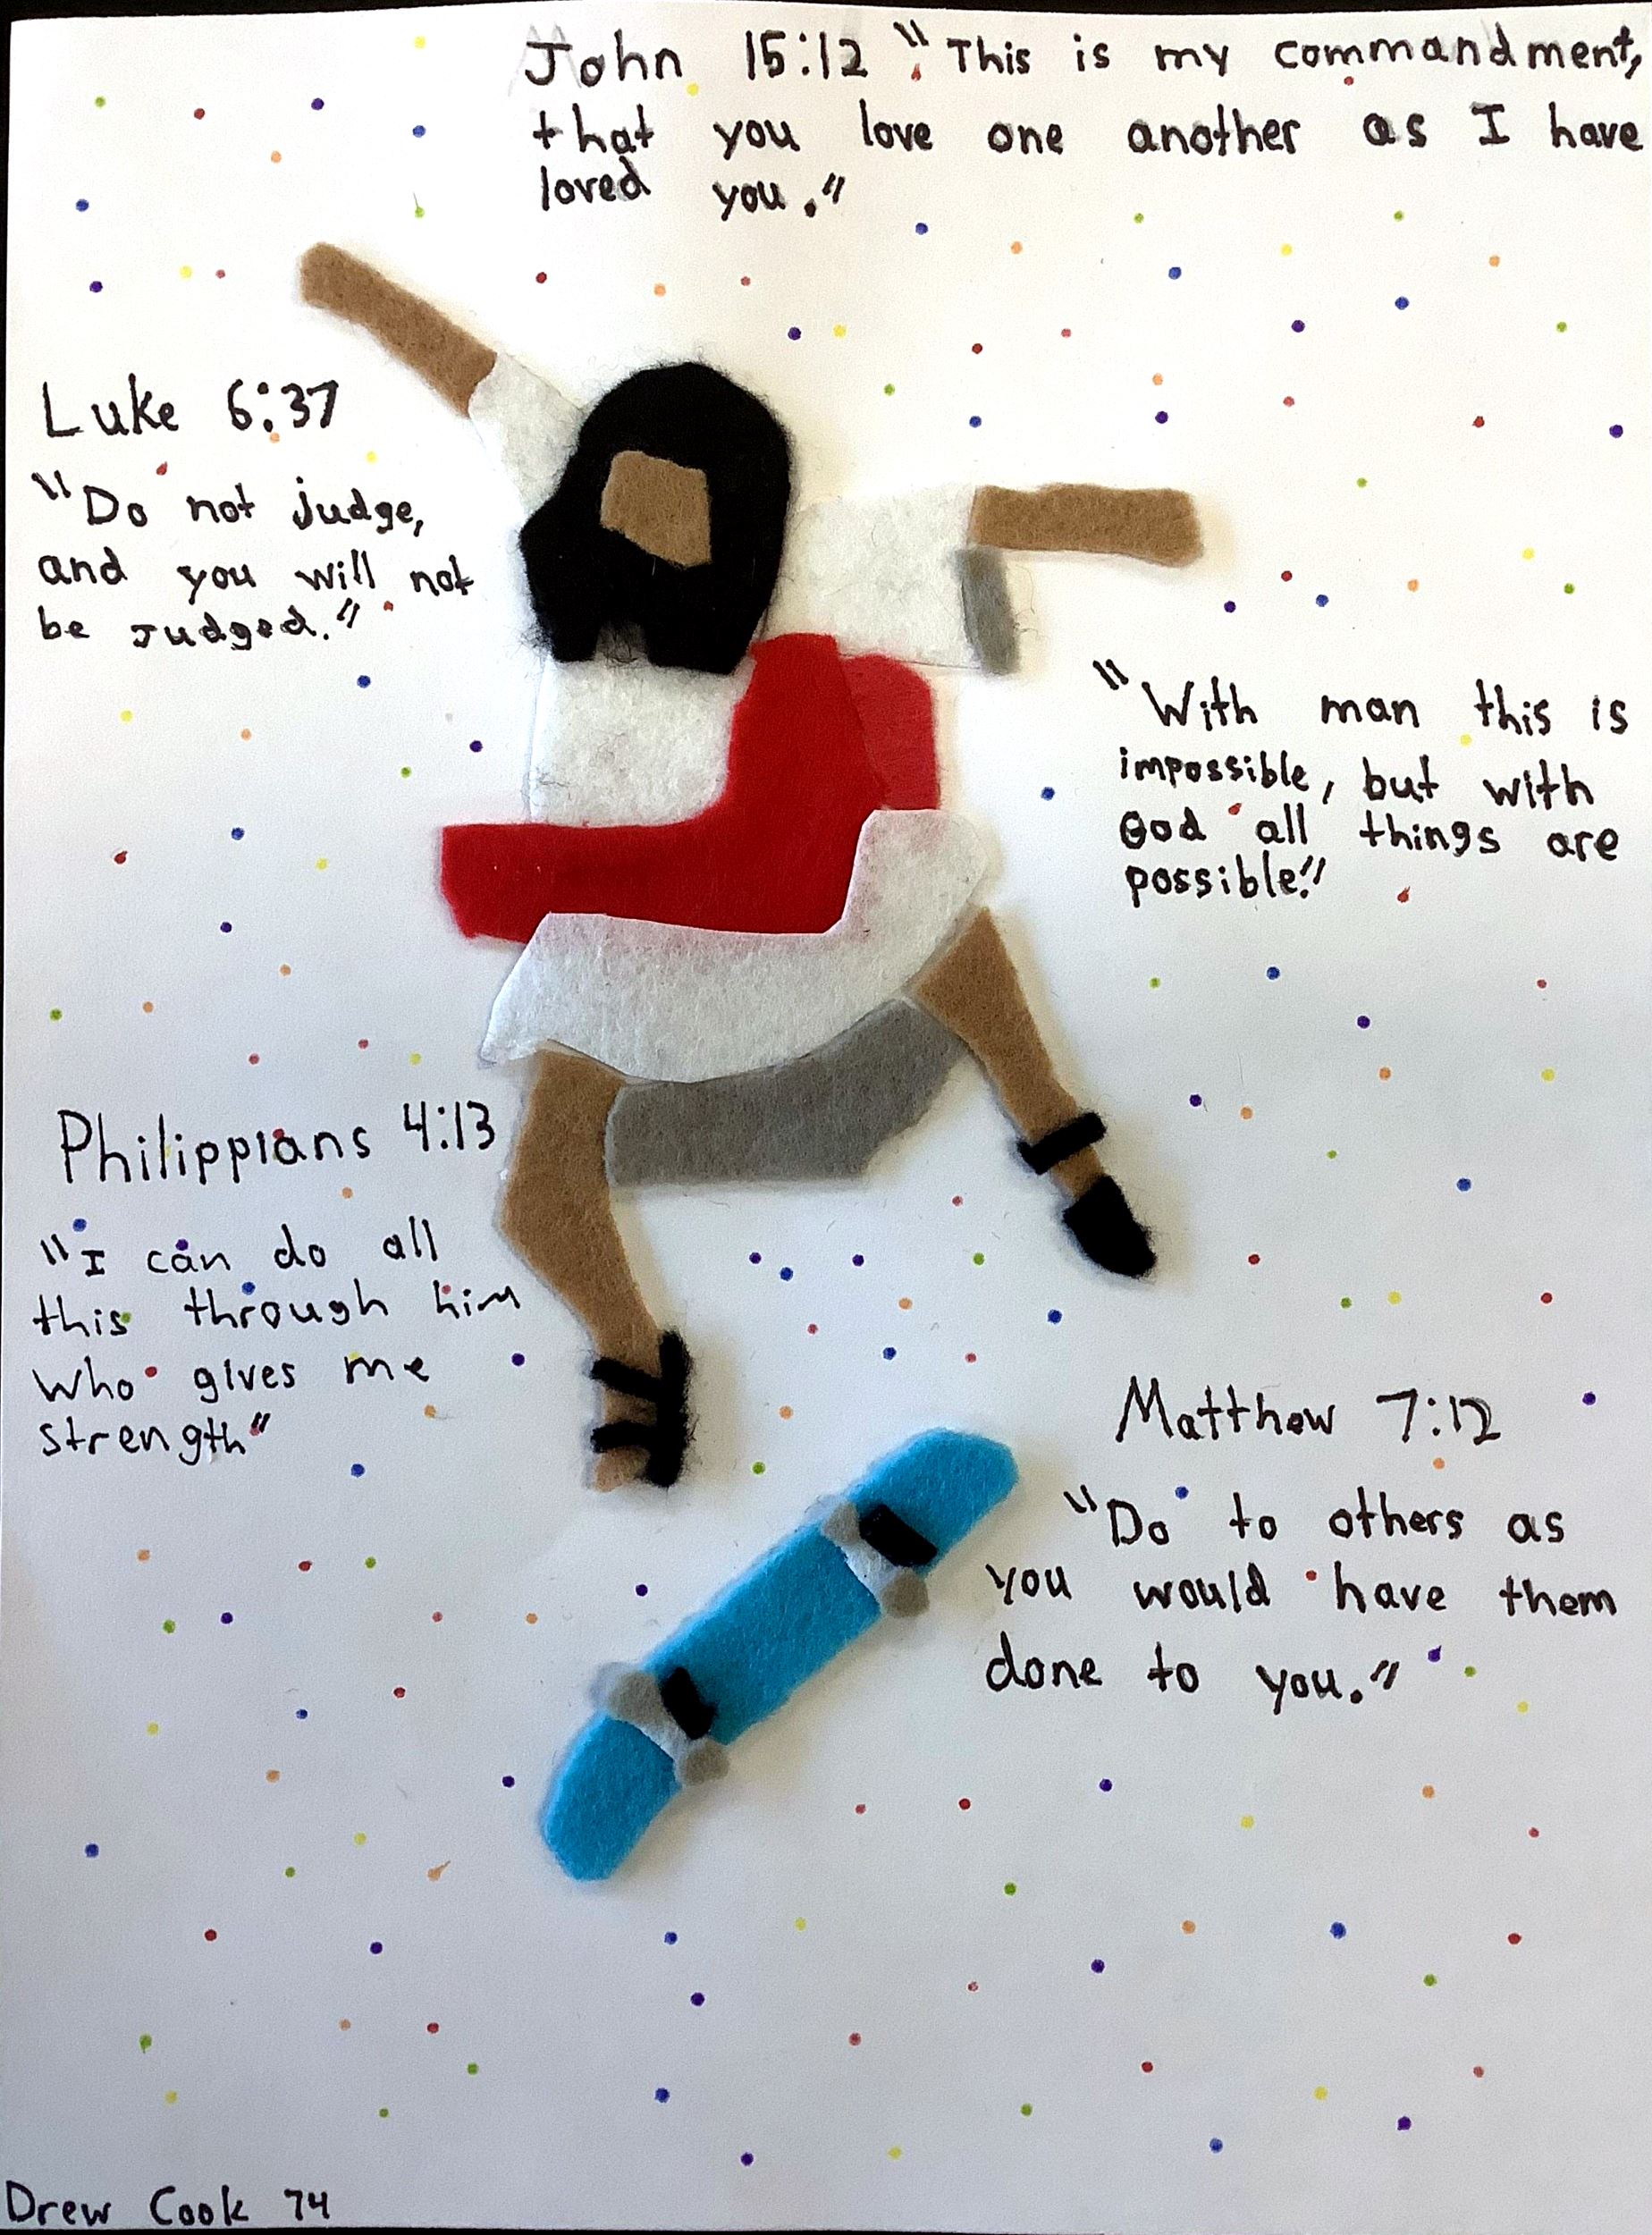 John 15:12 "This is my commandment,
that you love one another as I have
loved you."
Luke 6:37
"Do not judge,
and you will not
be judged."
"With man this is
impossible, but with
God all things are
possible."
Philippians 4:13
"I can do all
this through him
who gives me
strength"
Matthew 7:12
"Do to others as
you would have them
done to you."
Drew Cook 74